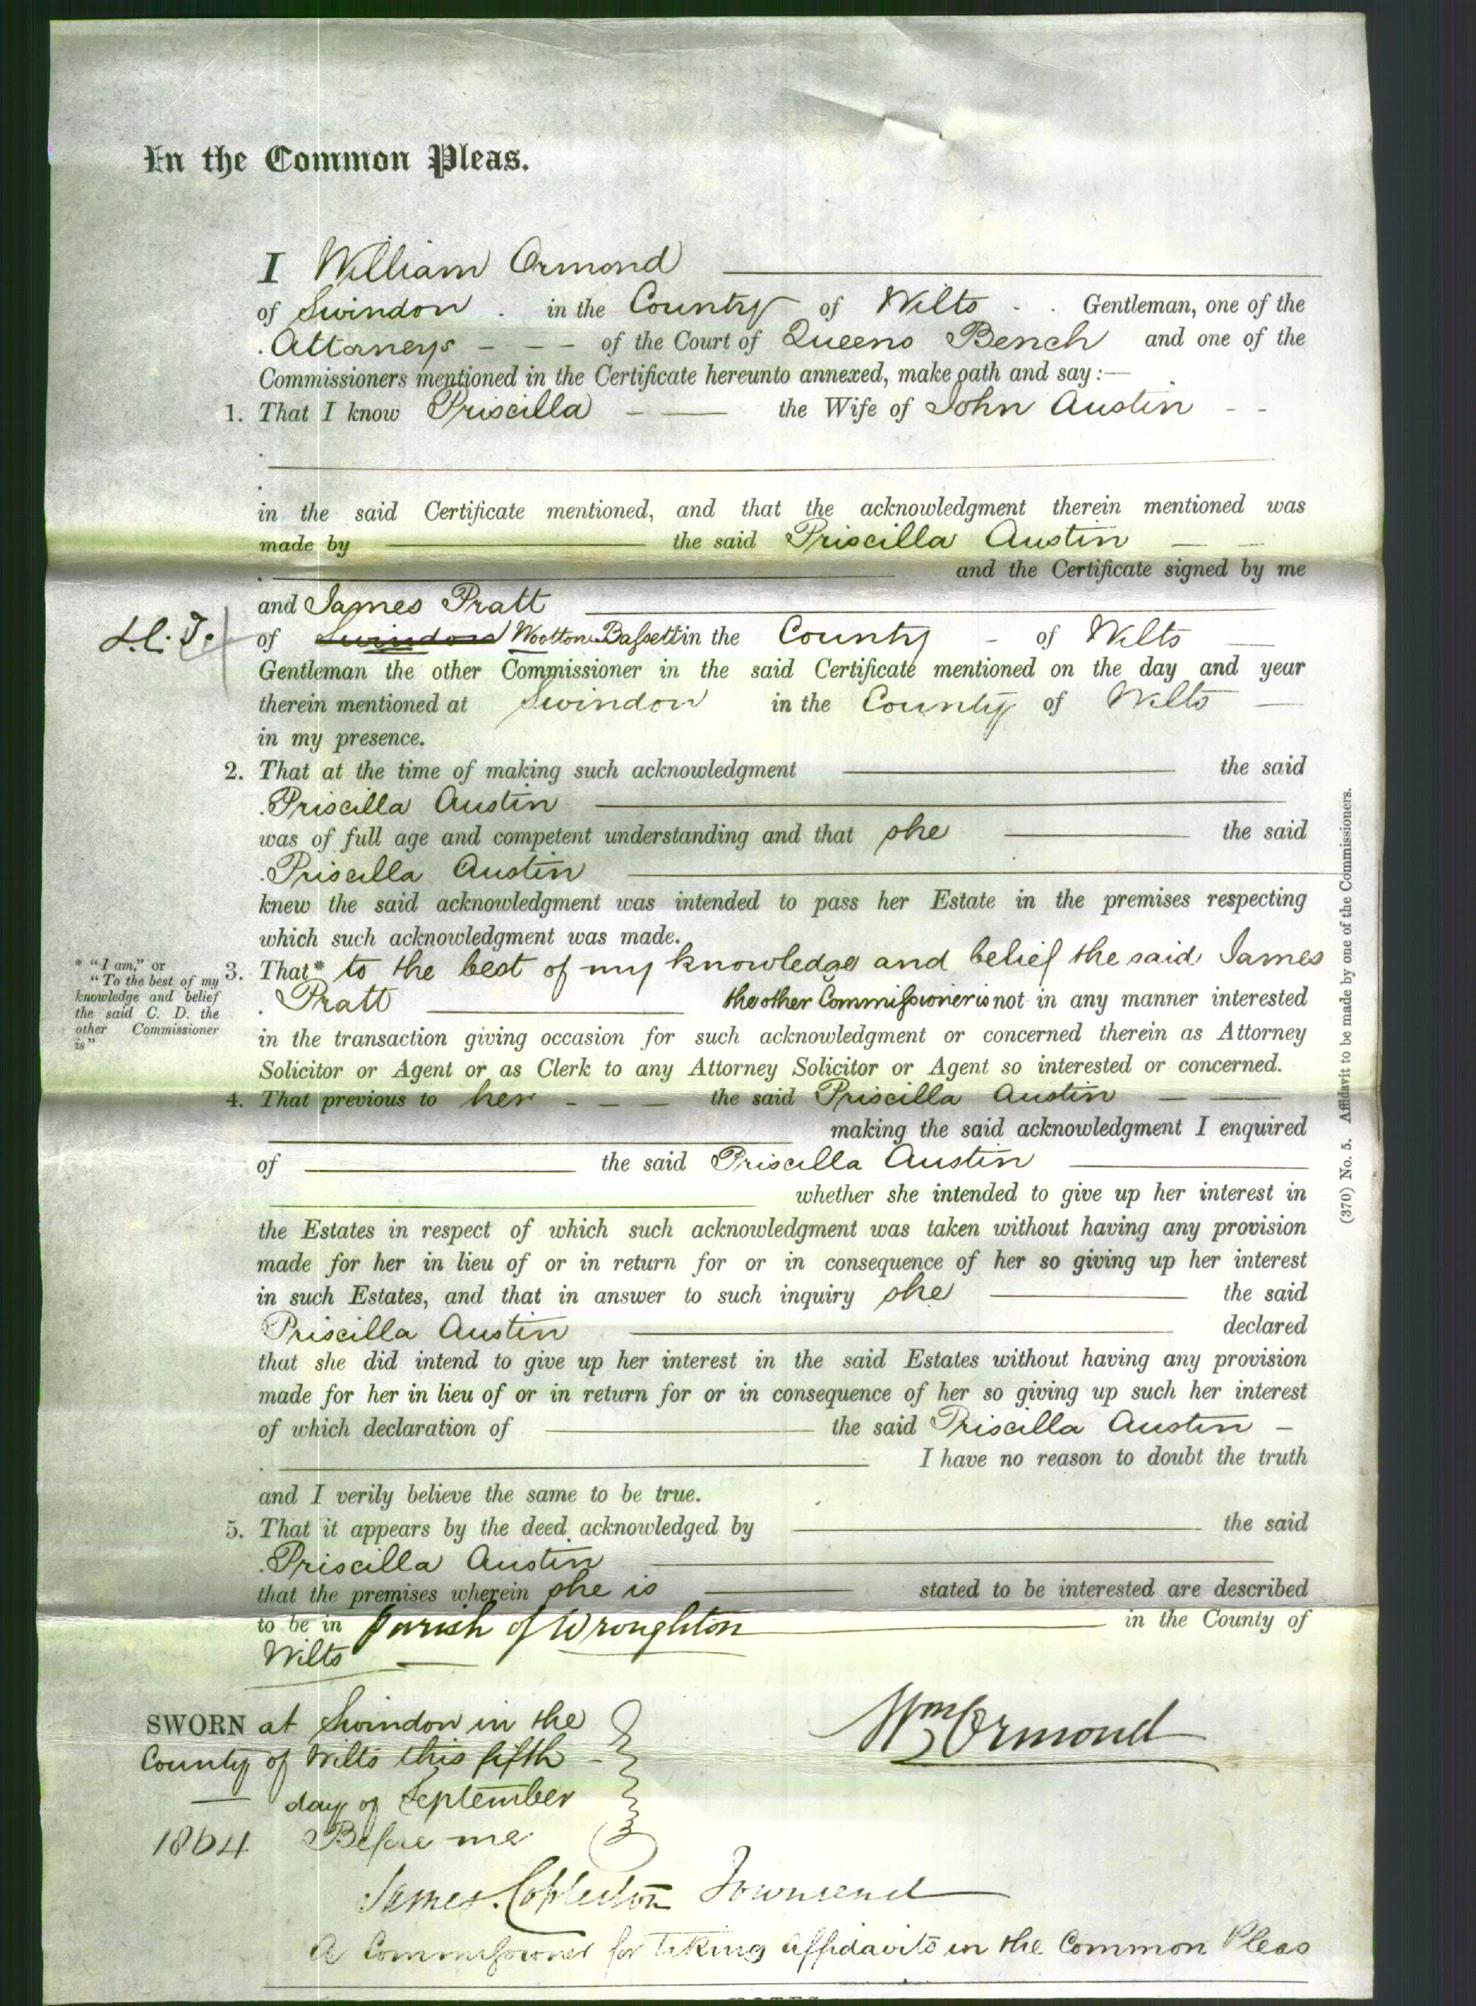 In the Common Pleas.
I William Ormond
of Swindon. in the County of Wilts - . Gentleman, one of the
Attorneys - - - of the Court of Queens Bench and one of the
Commissioners mentioned in the Certificate hereunto annexed, make oath and say :—
1. That I know Priscilla - — the Wife of John Austin - -
in the said Certificate mentioned, and that the acknowledgment therein mentioned was
made by the said Priscilla Austin — —
and the Certificate signed by me
and James Pratt
of Swindon Wootton Bassett in the County - of Wilts —
Gentleman the other Commissioner in the said Certificate mentioned on the day and year
therein mentioned at Swindon in the County of Wilts —
in my presence.
2. That at the time of making such acknowledgment the said
Priscilla Austin
was of full age and competent understanding and that she the said
Priscilla Austin
knew the said acknowledgment was intended to pass her Estate in the premises respecting
which such acknowledgment was made.
* "I am," or
"To the best of my
knowledge and belief
the said C. D. the
other Commissioner
is"
3. That* to the best of my knowledge and belief the said James
Pratt the other Commissioner is not in any manner interested
in the transaction giving occasion for such acknowledgment or concerned therein as Attorney
Solicitor or Agent or as Clerk to any Attorney Solicitor or Agent so interested or concerned.
4. That previous to her - - — the said Priscilla Austin — —
making the said acknowledgment I enquired
of the said Priscilla Austin
whether she intended to give up her interest in
the Estates in respect of which such acknowledgment was taken without having any provision
made for her in lieu of or in return for or in consequence of her so giving up her interest
in such Estates, and that in answer to such inquiry she the said
Priscilla Austin declared
that she did intend to give up her interest in the said Estates without having any provision
made for her in lieu of or in return for or in consequence of her so giving up such her interest
of which declaration of the said Priscilla Austin -
I have no reason to doubt the truth
and I verily believe the same to be true.
5. That it appears by the deed acknowledged by the said
Priscilla Austin
that the premises wherein she is stated to be interested are described
to be in Parish of Wroughton in the County of
Wilts
SWORN at Swindon in the
County of Wilts this fifth
day of September
1864 Before me
Wm Ormond
James Copleston Townsend
A Commissioner for taking affidavits in the Common Pleas
(370) No. 5. Affidavit to be made by one of the Commissioners.